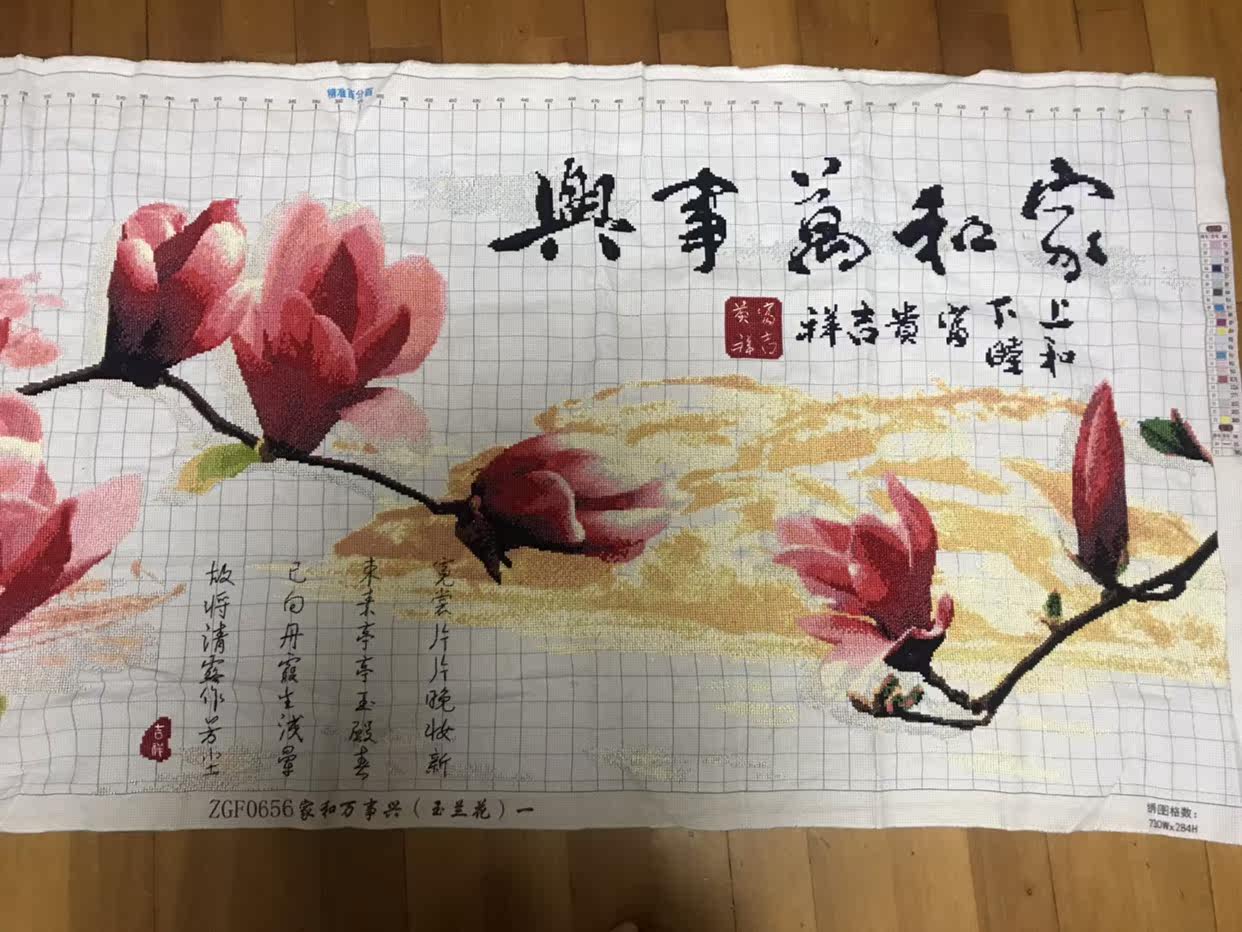 家和萬事興
上和
下睦
富貴吉祥
富貴
吉祥
霓裳片片晚妆新
束素亭亭玉殿春
已向丹霞生浅晕
故将清露作芳尘
吉祥
ZGF0656家和万事兴（玉兰花）一
绣图格数：
710Wx284H